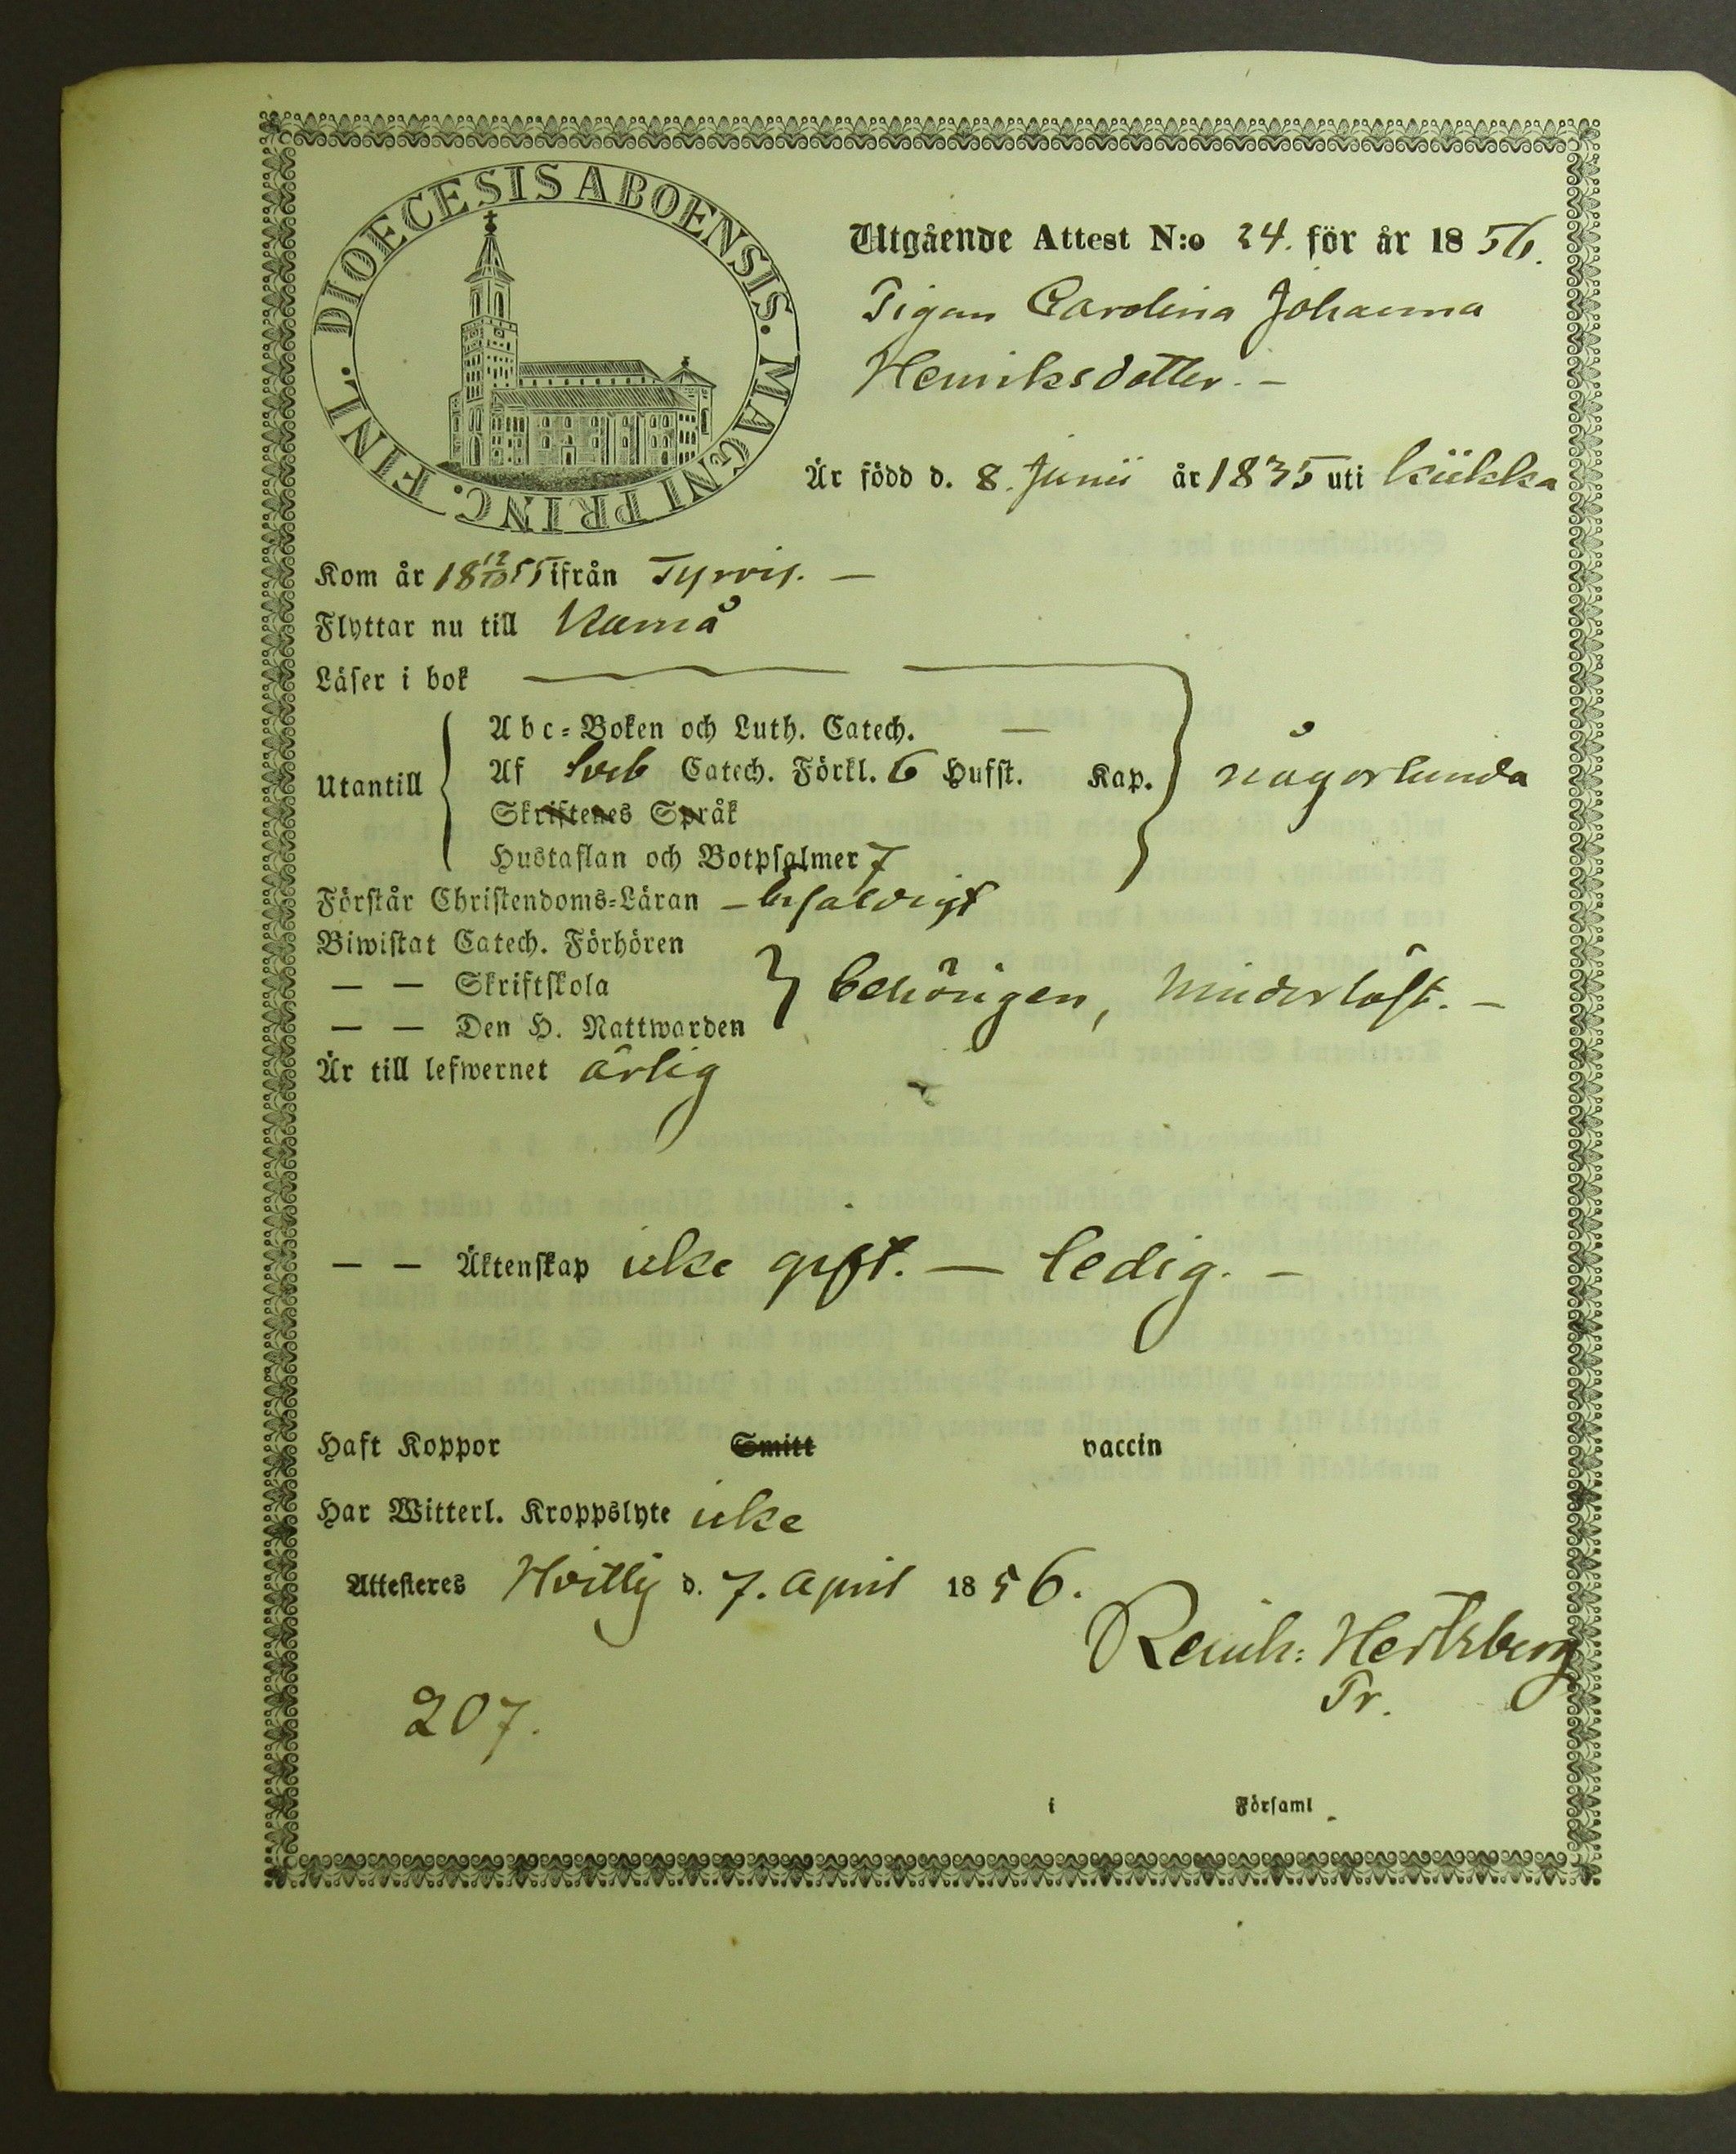 DIOECESIS ABOENSIS. MAGNI PRINC. FINL.
Utgående Attest N:o 24. för år 1856.
Pigan Carolina Johanna
Henriksdotter. —
Är född d. 8. Junii år 1835 uti Kiikka
Kom år 18 12/10 55 ifrån Tyrvis. —
Flyttar nu till Kumå
Läser i bok —
Abc-Boken och Luth. Catech. —
Utantill Af Sveb Catech. Förkl. 6 Hufst. Kap. någorlunda
Skriftenes Språk
Hustaflan och Botpsalmer 7
Förstår Christendoms-Läran – enfaldigt
Biwistat Catech. Förhören
— — Skriftskola behörigen, hinderlöst. —
— — Den H. Nattwarden
Är till lefwernet ärlig
— — Äktenskap icke gift. — ledig. —
Haft Koppor Smitt vaccin
Har Witterl. Kroppslyte icke
Attesteres Hvitty d. 7. April 1856.
Reinh: Hertzberg
Pr.
207.
i Församl.